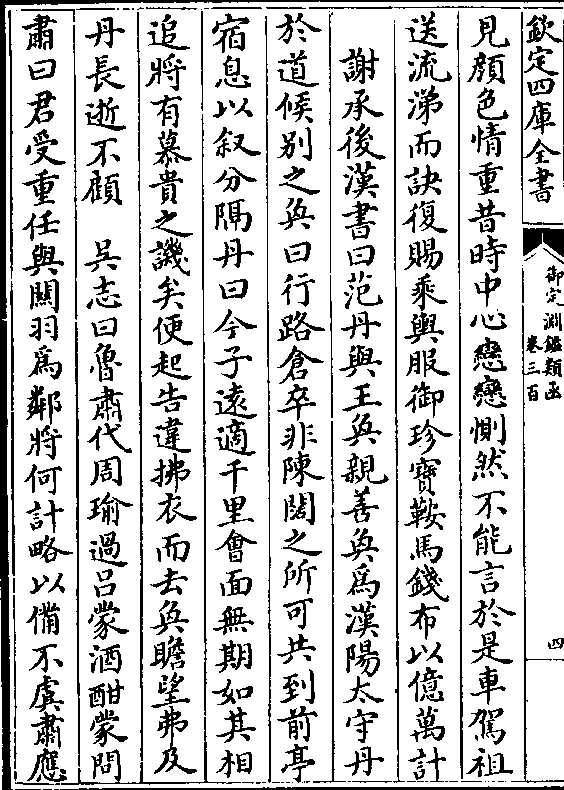 欽定四庫全書
御定淵鑑類函
卷三百
四
見顔色情重昔時中心戀戀惻然不能言於是車駕祖
送流涕而訣復賜乘輿服御珍寶鞍馬錢布以億萬計
謝承後漢書曰范丹與王奐親善奐爲漢陽太守丹
於道候别之奐曰行路倉卒非陳闊之所可共到前亭
宿息以叙分隔丹曰今子遠適千里會面無期如其相
追將有慕貴之譏矣便起告違拂衣而去奐瞻望弗及
丹長逝不顧　吳志曰魯肅代周瑜過吕蒙酒酣蒙問
肅曰君受重任與關羽爲鄰將何計略以備不虞肅應